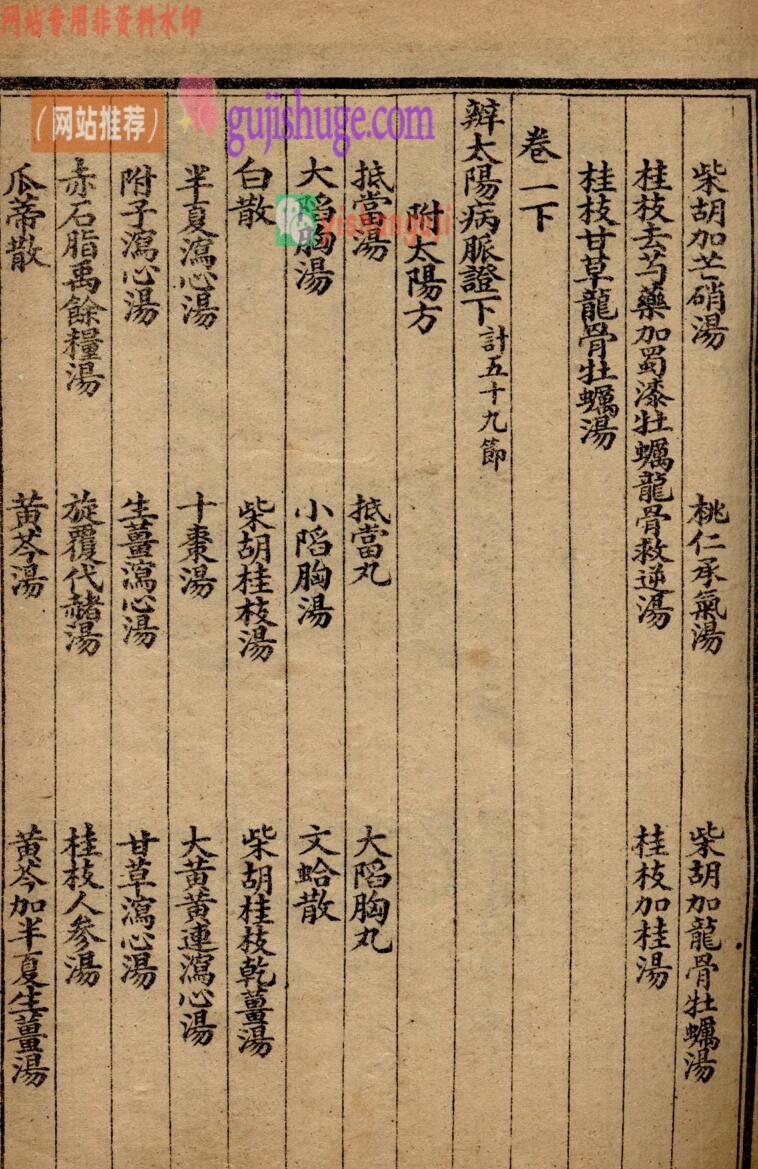 网站专用非资料水印
(网站推荐)
gujishuge.com
柴胡加芒硝湯 桃仁承氣湯 柴胡加龍骨牡蠣湯
桂枝去芍藥加蜀漆牡蠣龍骨救逆湯 桂枝加桂湯
桂枝甘草龍骨牡蠣湯
卷一下
辯太陽病脈證下計五十九節
附太陽方
抵當湯 抵當丸 大陷胸丸
大陷胸湯 小陷胸湯 文蛤散
白散 柴胡桂枝湯 柴胡桂枝乾薑湯
半夏瀉心湯 十棗湯 大黃黃連瀉心湯
附子瀉心湯 生薑瀉心湯 甘草瀉心湯
赤石脂禹餘糧湯 旋覆代赭湯 桂枝人參湯
瓜蒂散 黃芩湯 黃芩加半夏生薑湯